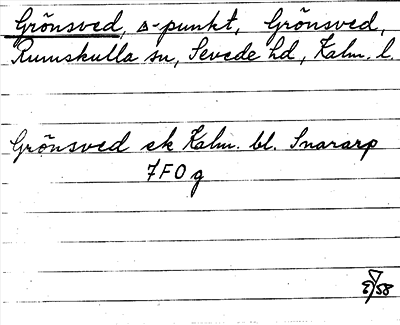 Grönsved, Δ-punkt, Grönsved,
Rumskulla sn, Sevede hd, Kalm. l.
Grönsved ek Kalm. bl. Snararp
7F0g